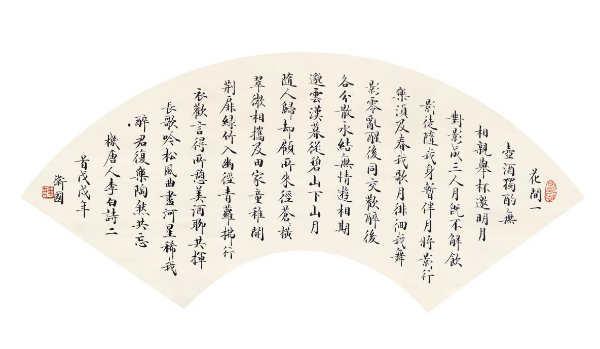 花間一
壺酒獨酌無
相親舉杯邀明月
對影成三人月既不解飲
影徒隨我身暫伴月將影行
樂須及春我歌月徘徊我舞
影零亂醒後同交歡醉後
各分散永結無情遊相期
邈雲漢暮從碧山下山月
隨人歸却顧所來徑蒼橫
翠微相攜及田家童稚開
荊扉綠竹入幽徑青蘿拂行
衣歡言得所憩美酒聊共揮
長歌吟松風曲盡河星稀我
醉君復樂陶然共忘
機唐人李白詩二
首戊戌年
衛國